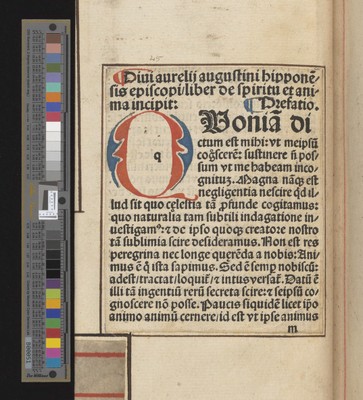 Diui aurelii augustini hipponē
sis episcopi liber de spiritu et ani
ma incipit: Prefatio.
q Uoniā di
ctum est mihi: vt meipsū
cog̃scerē: sustinere ñ pos
sum vt me habeam inco
gnitū. Magna nāqȝ est
negligentia nescire qđ il
lud sit quo celestia tā ꝓfunde cogitamus:
quo naturalia tam subtili indagatione in
uestigam⁹: ⁊ de ipso quoqȝ creatore nostro
tā sublimia scire desideramus. Non est res
peregrina nec longe querēda a nobis: Ani
mus ē q̄ ista sapimus. Sed ē semp nobiscū:
adest/ tractat/ loquit᷑/ ⁊ intus versat᷑. Datū ē
illi tā ingentiū rerū secreta scire: ⁊ seipsū co
gnoscere nō posse. Paucis siquidē licet ip̄o
animo animū cernere/ id est vt ipse animus
m